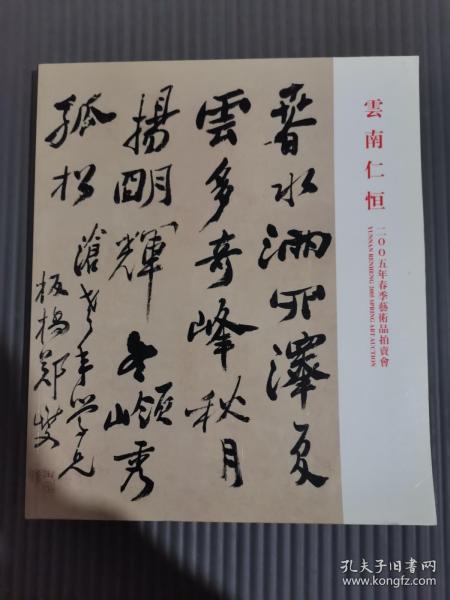 雲南仁恒
二〇〇五年春季藝術品拍賣會
YUNNAN RENHENG 2005 SPRING ART AUCTION
春水滿四澤夏
雲多奇峰秋月
揚明輝冬嶺秀
孤松
滄老年学兄
板橋鄭燮
孔夫子旧书网
www.kongfz.com